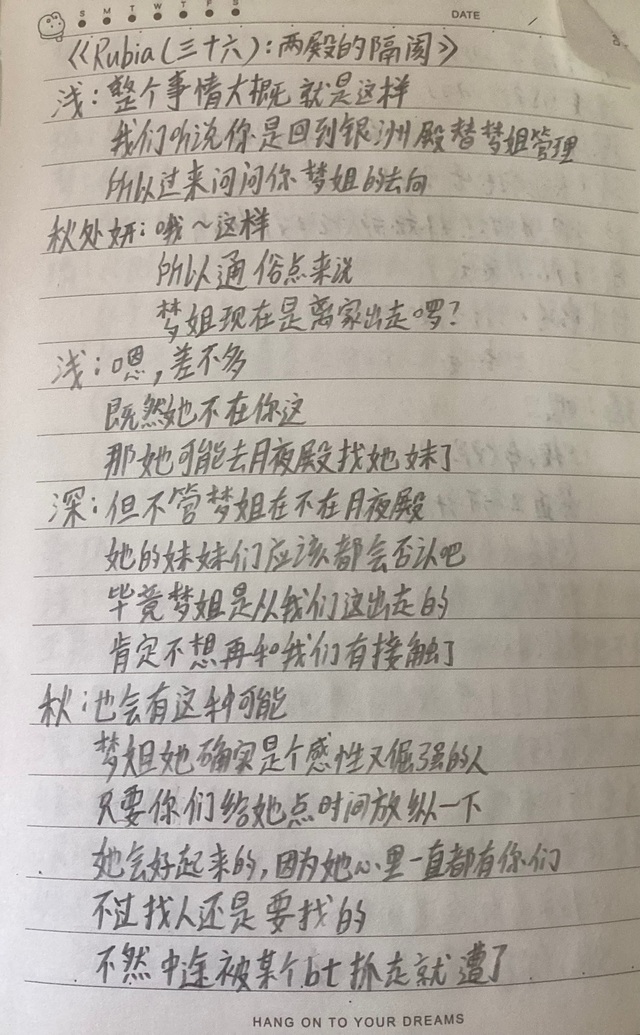 S M T W T F S
DATE /
《Rubia(三十六):两殿的隔阂》
浅:整个事情大概就是这样
我们听说你是回到银洲殿替梦姐管理
所以过来问问你梦姐的去向
秋处妍:哦～这样
所以通俗点来说
梦姐现在是离家出走啰?
浅:嗯,差不多
既然她不在你这
那她可能去月夜殿找她妹了
深:但不管梦姐在不在月夜殿
她的妹妹们应该都会否认吧
毕竟梦姐是从我们这出走的
肯定不想再和我们有接触了
秋:也会有这种可能
梦姐她确实是个感性又倔强的人
只要你们给她点时间放纵一下
她会好起来的,因为她心里一直都有你们
不过找人还是要找的
不然中途被某个bt抓走就遭了
HANG ON TO YOUR DREAMS